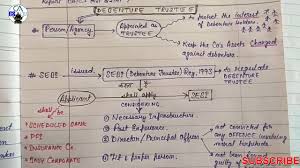 DEBENTURE TRUSTEE
* Person/Agency
Appointed as
TRUSTEE
to protect the interest
of DEBENTURE HOLDERS
Keep the Co's Assets Charged
against debenture.
* SEBI issued SEBI (Debenture Trustee) Reg, 1993
to regulate
DEBENTURE
TRUSTEE
Applicant shall apply SEBI
shall be
CONSIDERING
* SCHEDULED BANK
* PFI
* INSURANCE Co.
* BODY CORPORATE
> Necessary Infrastructure
> Past Experience
> Director/Principal Officer
not convicted for
any OFFENCE involving
moral turpitude.
> fit & proper Person.
SUBSCRIBE